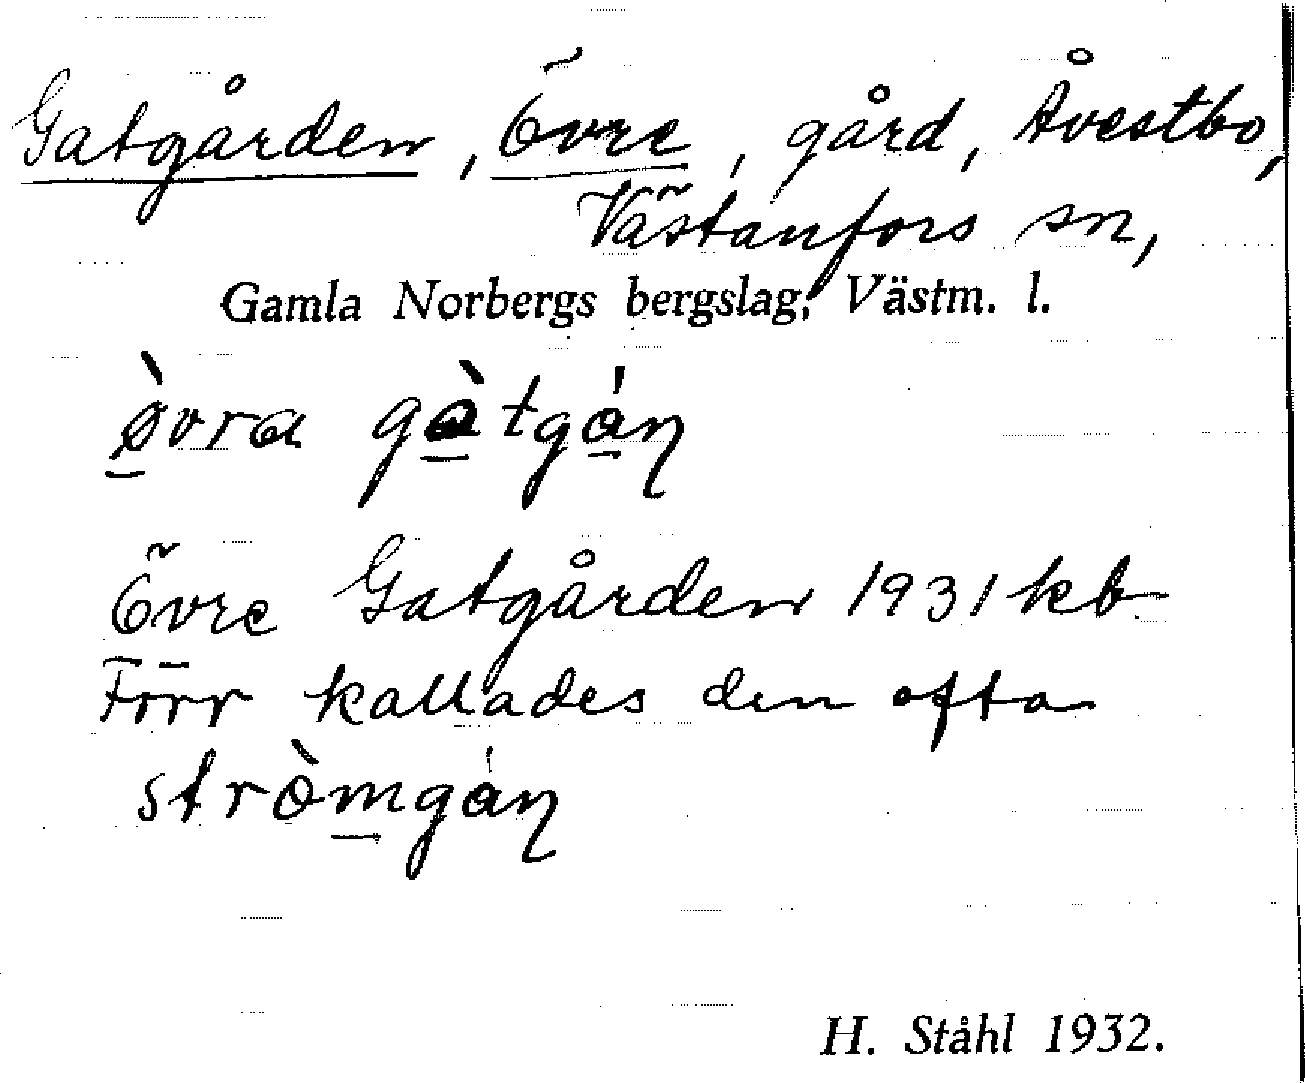 Gatgården, Övre, gård, Åvestbo,
Västanfors sn,
Gamla Norbergs bergslag, Västm. l.
ø̀vra gàtgán
Övre Gatgården 1931 kb
Förr kallades den ofta
stròmgán
H. Ståhl 1932.